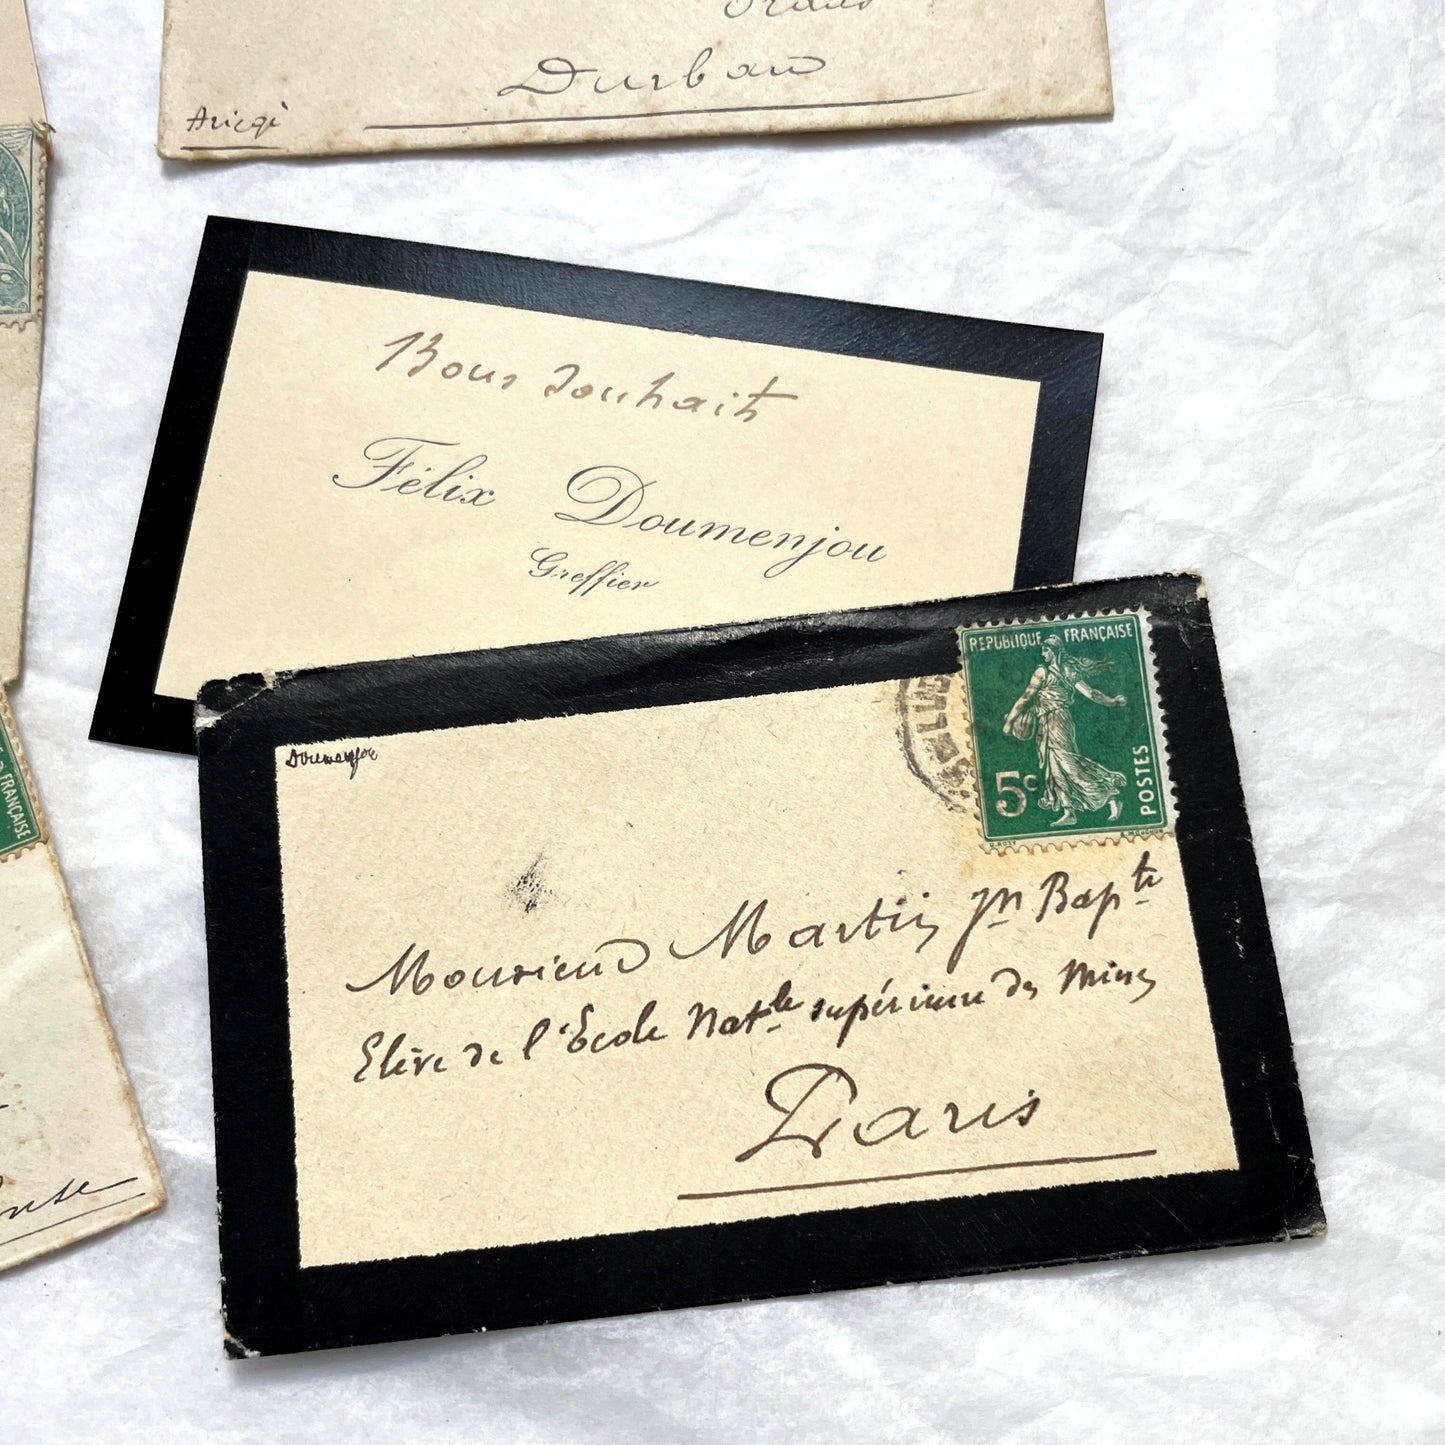 Durban
Ariège
Bous souhait
Félix Doumenjou
Greffier
Doumenjou
RÉPUBLIQUE FRANÇAISE
5c
POSTES
Monsieur Martin Jn Bapte
Elève de l'École Natle supérieure des Mines
Paris
FRANÇAISE